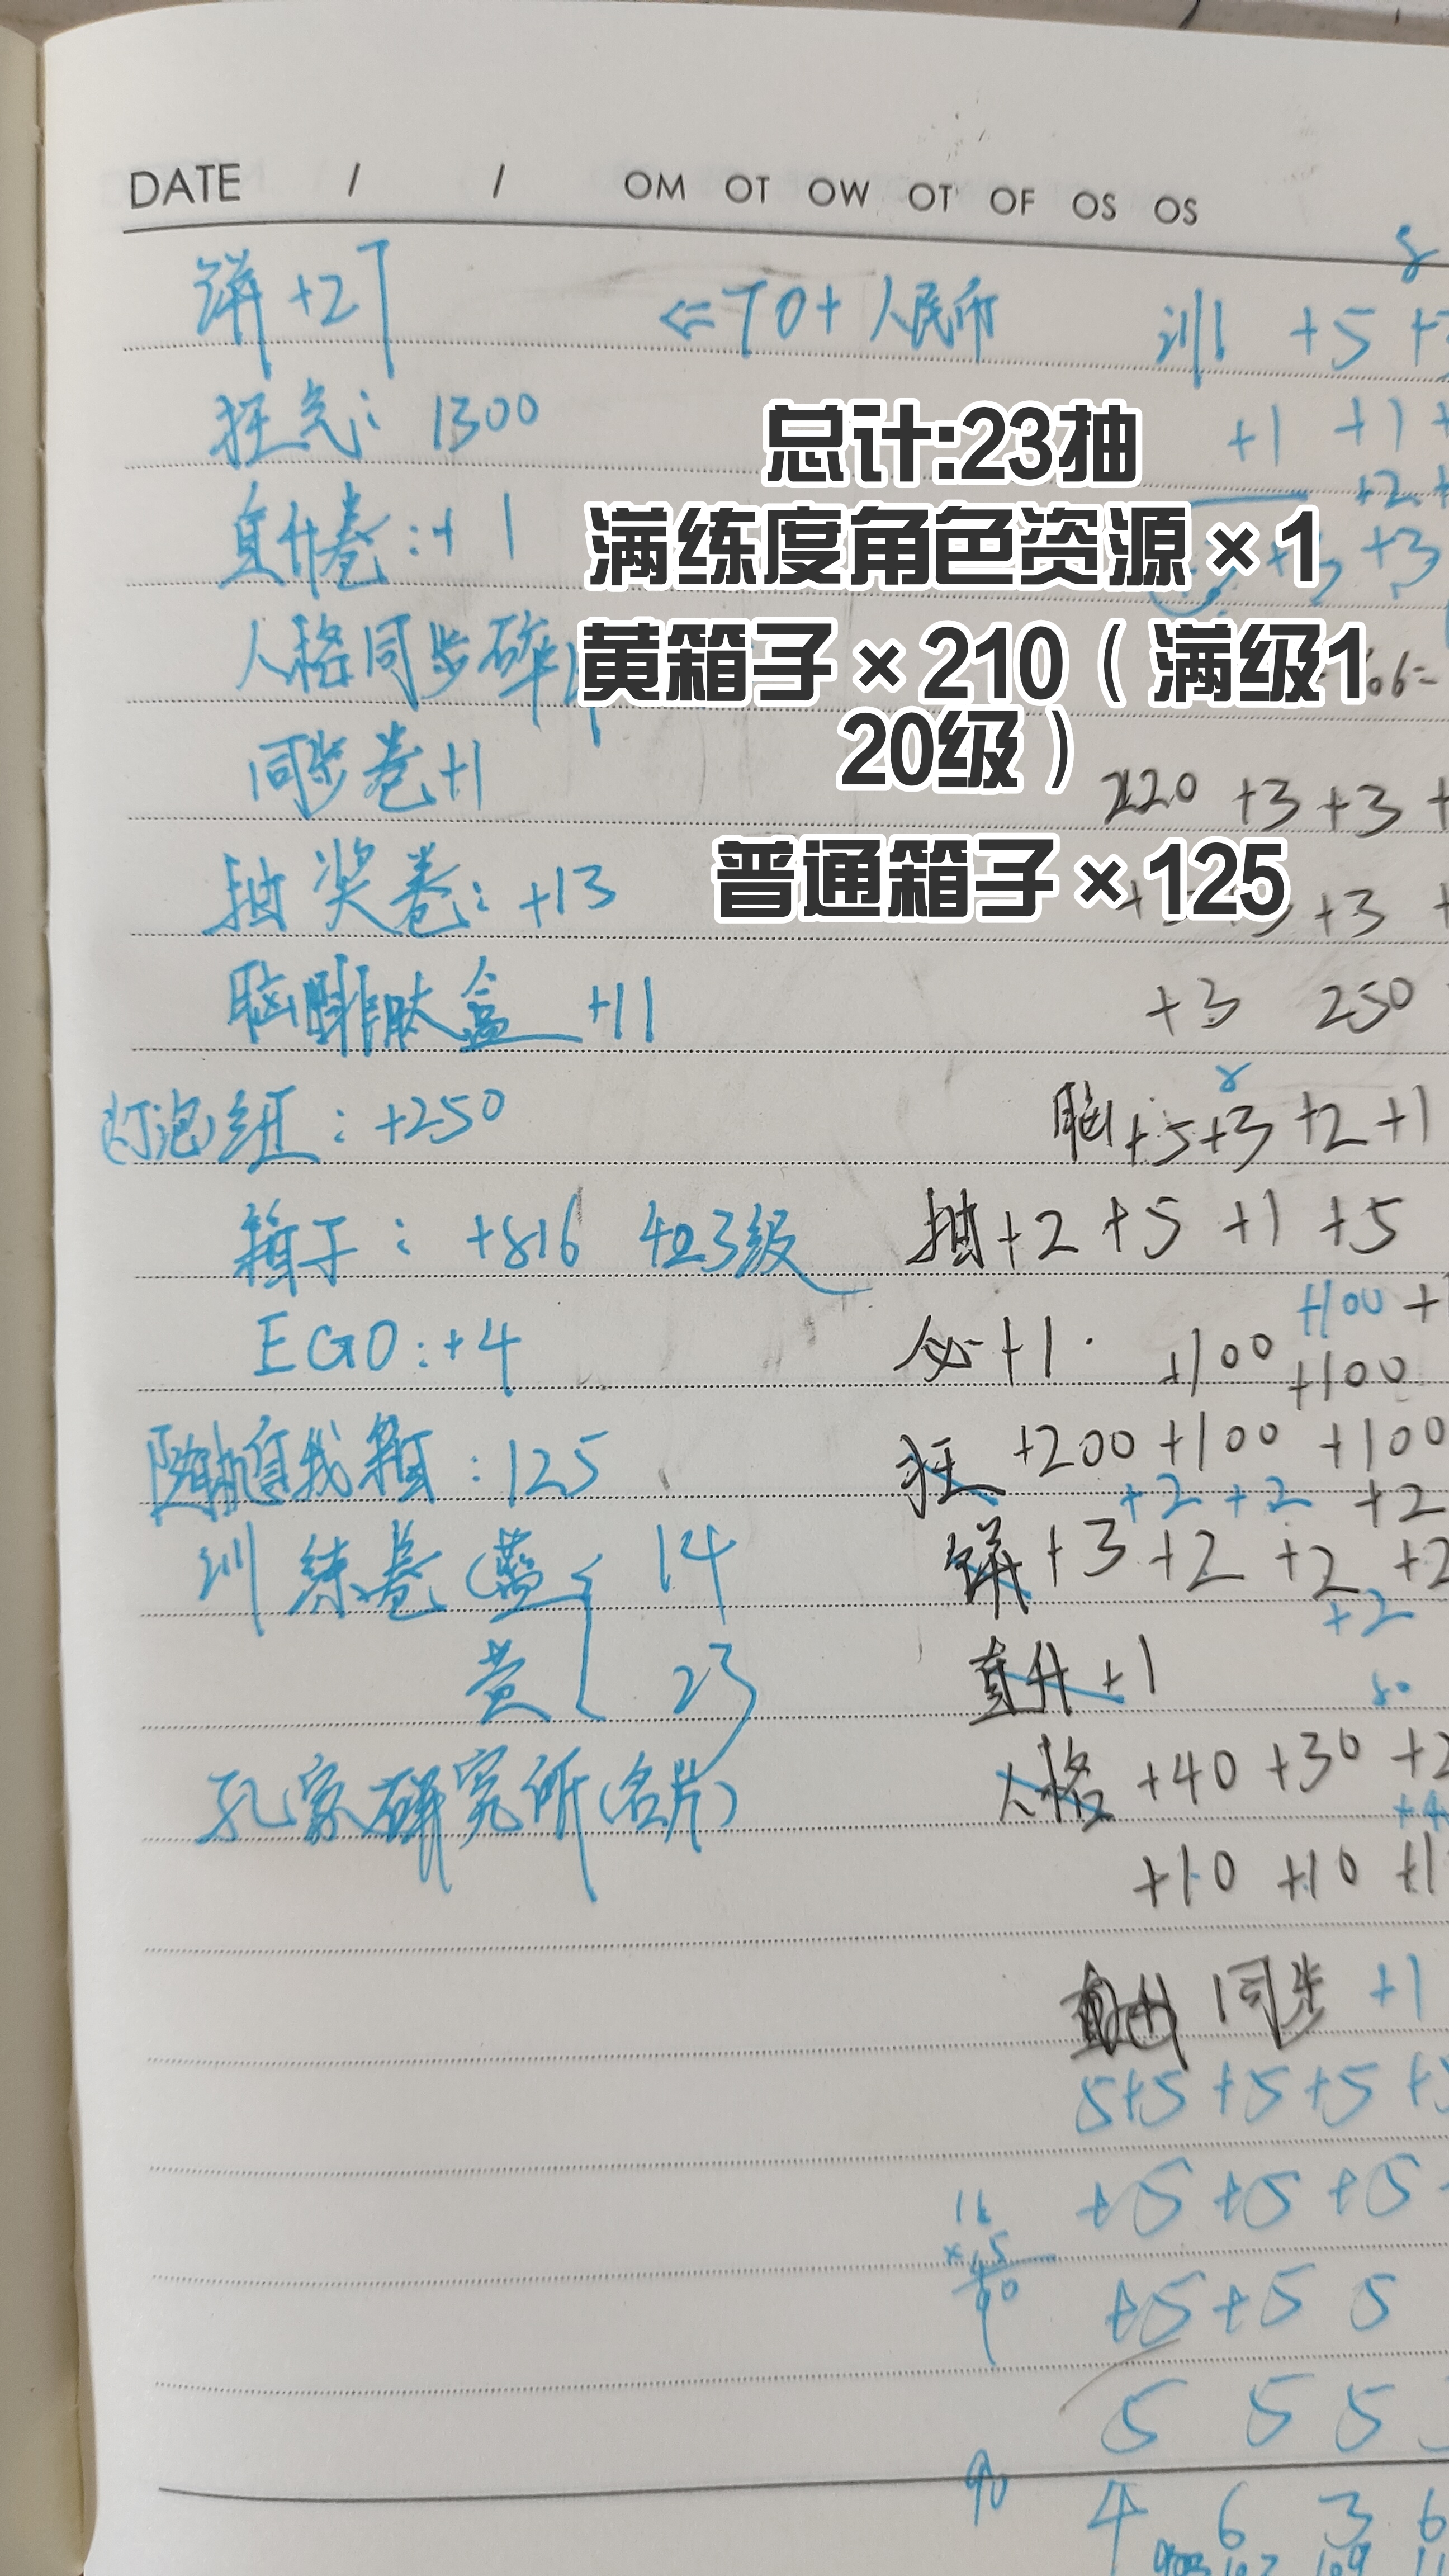 DATE / / OM OT OW OT OF OS OS
饼 +27 ⇐70+人民币
训 +5
狂气: 1300
+1 +1
总计:23抽
直升卷:+1
+3
满练度角色资源×1
人格同步碎片
黄箱子×210（满级1
20级）
同步卷+1
220 +3 +3 +
普通箱子×125
抽奖卷: +13
+3
脑啡肽盒 +11
+3 250
灯泡组: +250
脑+5+3 +2 +1
箱子: +816 423级
抽+2 +5 +1 +5
+100 +
EGO:+4
必+1 +100 +100
随机自我箱:125
狂 +200 +100 +100
+2 +2 +2
训练卷(蓝 14
饼 +3 +2 +2 +2
+2
黄 23
直升+1
孔家研究所(名片)
人格 +40 +30
+10 +10
同步 +1
5+5 +5 +5
+5 +5 +5
+5 +5 5
5 5 5
90
4 6 3 6